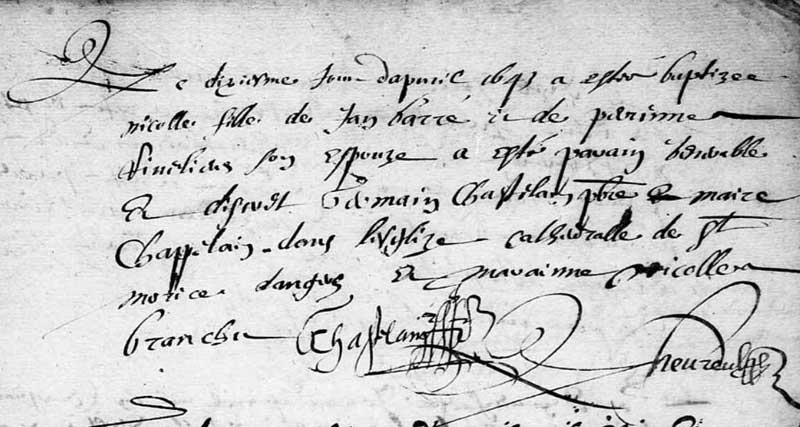 Le dixiesme jour dapvril 1643 a esté baptizee
nicolle fille de Jan barré & de perinne
son espouze a esté parain venerable
& discret Germain Chastelain pbre & maire
Chappelain dans leglize cathedralle de st
morice dangers Et marainne nicolle
branchu Chastelain